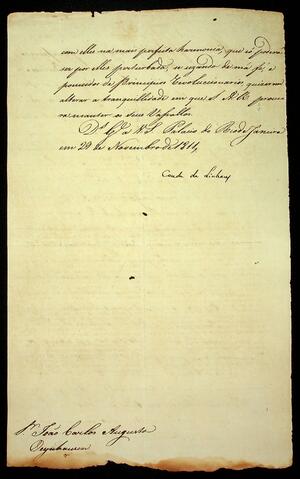 com elles na mais perfeita harmonia, que só poderá
ser por elles perturbada, se uzando de má fé, e
possuidos de Principios Revolucionarios, quizerem
alterar a tranquilidade em que S. A. R. procu
ra manter os seus Vassallos.
D.s G.e a V.S. Palacio do Rio de Janeiro
em 20 de Novembro de 1811,
Conde de Linhares
S.r João Carlos Augusto
Oeynhausen